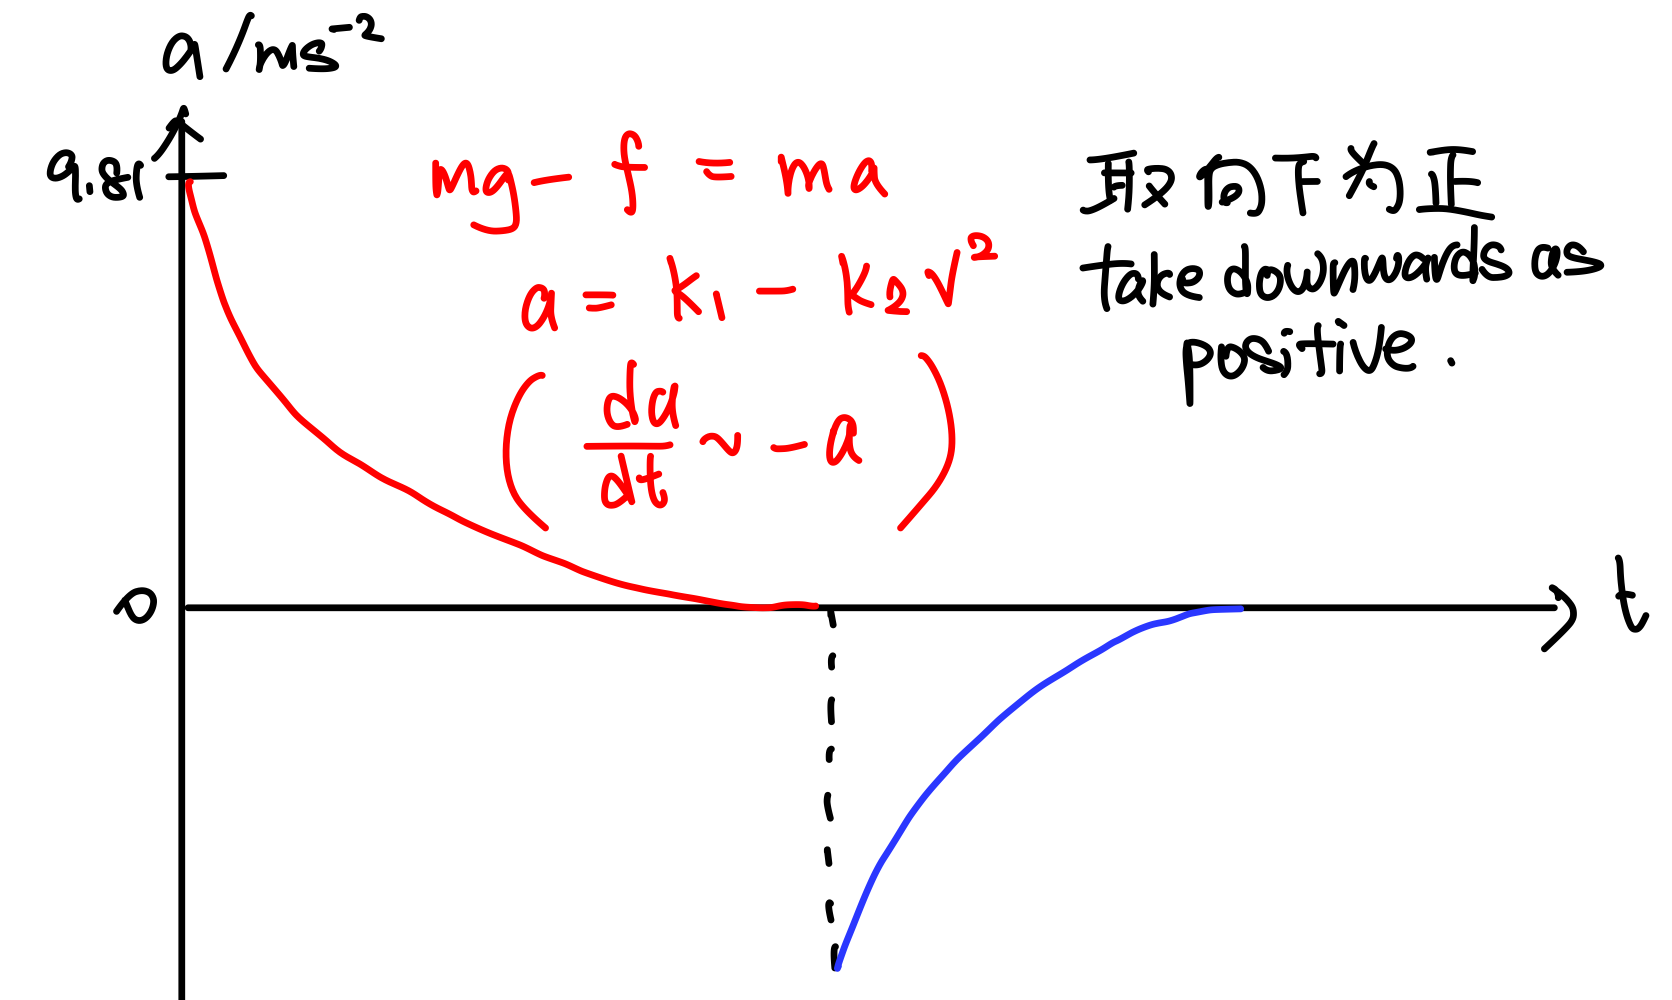 a /ms⁻²
9.81
mg - f = ma
a = k₁ - k₂v²
(da/dt ~ -a)
取向下为正
take downwards as
positive.
0
t